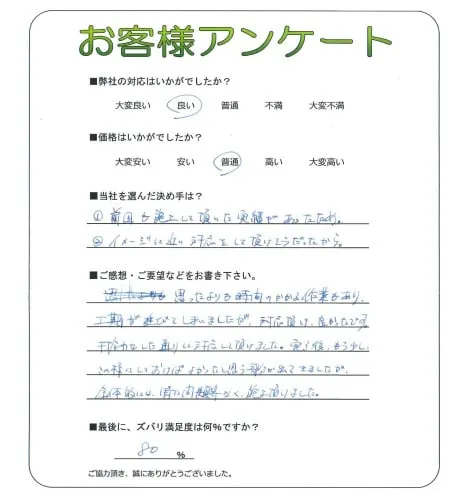 お客様アンケート
■弊社の対応はいかがでしたか？
大変良い 良い 普通 不満 大変不満
■価格はいかがでしたか？
大変安い 安い 普通 高い 大変高い
■当社を選んだ決め手は？
① 前回も施工して頂いた実績があったため。
② イメージに近い対応をして頂けそうだったから。
■ご感想・ご要望などをお書き下さい。
思ったよりも時間のかかる作業もあり、
工期が延びてしまいましたが、対応頂け、良かったです。
打合せした通りに対応して頂けました。完了後、もう少し
この様にしておけばよかったと思う部分が出てきましたが、
全体的には、特に問題等なく、施工頂けました。
■最後に、ズバリ満足度は何%ですか？
80 %
ご協力頂き、誠にありがとうございました。